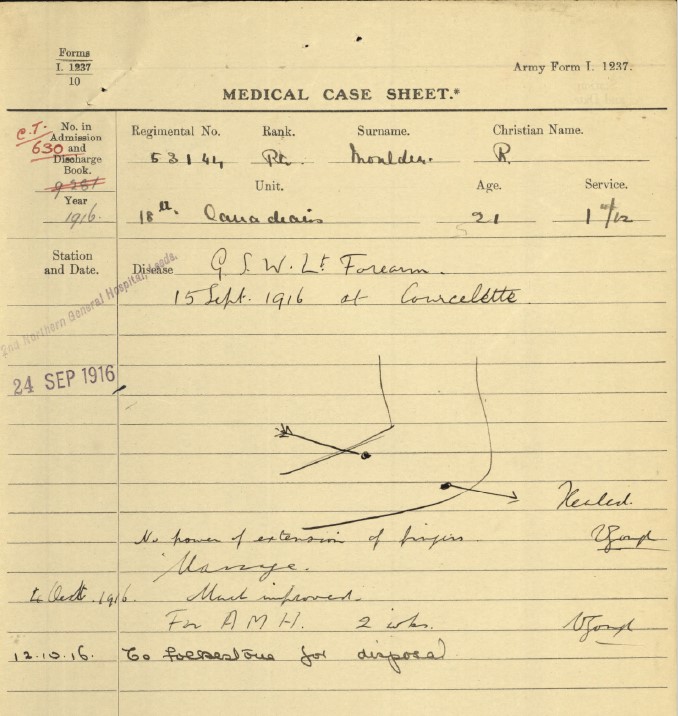 Forms
I. 1237
10
Army Form I. 1237.
MEDICAL CASE SHEET.*
C.T.
630
No. in
Admission
and
Discharge
Book.
Year
1916.
Regimental No. Rank. Surname. Christian Name.
53144 Pte. Moulder. R.
Unit. Age. Service.
18th Canadians 21 1 7/12
Station
and Date.
Disease G. S. W. Lt Forearm.
15 Sept. 1916 at Courcelette.
2nd Northern General Hospital, Leeds.
24 SEP 1916
Healed.
No power of extension of fingers.
Massage.
4 Oct. 1916. Much improved.
For A M H. 2 wks.
12.10.16. To Folkestone for disposal